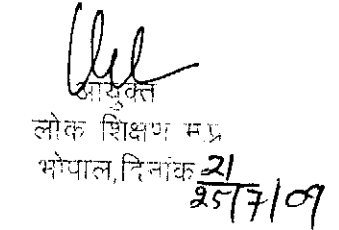 आयुक्त
लोक शिक्षण म.प्र
भोपाल,दिनांक 21
25/7/09